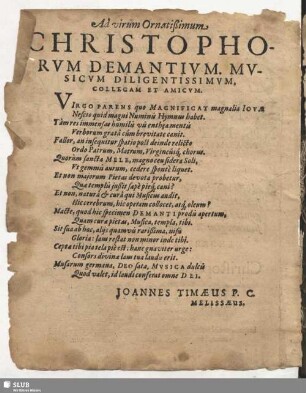 Ad virum Ornatißimum
CHRISTOPHO-
RVM DEMANTIVM. MV-
SICVM DILIGENTISSIMVM,
COLLEGAM ET AMICVM.
VIRGO PARENS quæ MAGNIFICAT magnalia IOVÆ
Nescio quid magni Numinis Hymnus habet.
Tàm res immensas humili vii enthea mentis
Verborum gratâ cùm brevitate canit.
Fallor, an insequitur spatio post deinde relicto
Ordo Patrum, Matrum, Virgineusq́; chorus.
Quorum sancta MELE, magno ceu sidera Soli,
Vt gemmis aurum, cedere spontè liquet.
Et non majorum Pietas devota probetur,
Qua templis jussit sæpè pieq́; cani?
Et non, naturâ & curâ qui Musicus audit,
Hic cerebrum, hic operam collocet, atq́; oleum?
Macte, quod hîc specimen DEMANTI prodis apertum,
Quàm curæ pietas, Musica, templa, tibi.
Sit sua ab hoc, alijs quamvis rarißima, nisu
Gloria: jam restas non minor inde tibi.
Cœpta tibi pia tela pij est: hanc gnaviter urge:
Censors divinæ lausua laudis erit.
Musarum germana, DEO sata, MVSICA dulcis
Quod valet, id laudi conserat omne DEI.
JOANNES TIMÆUS P. C.
MELISSÆUS.
SLUB